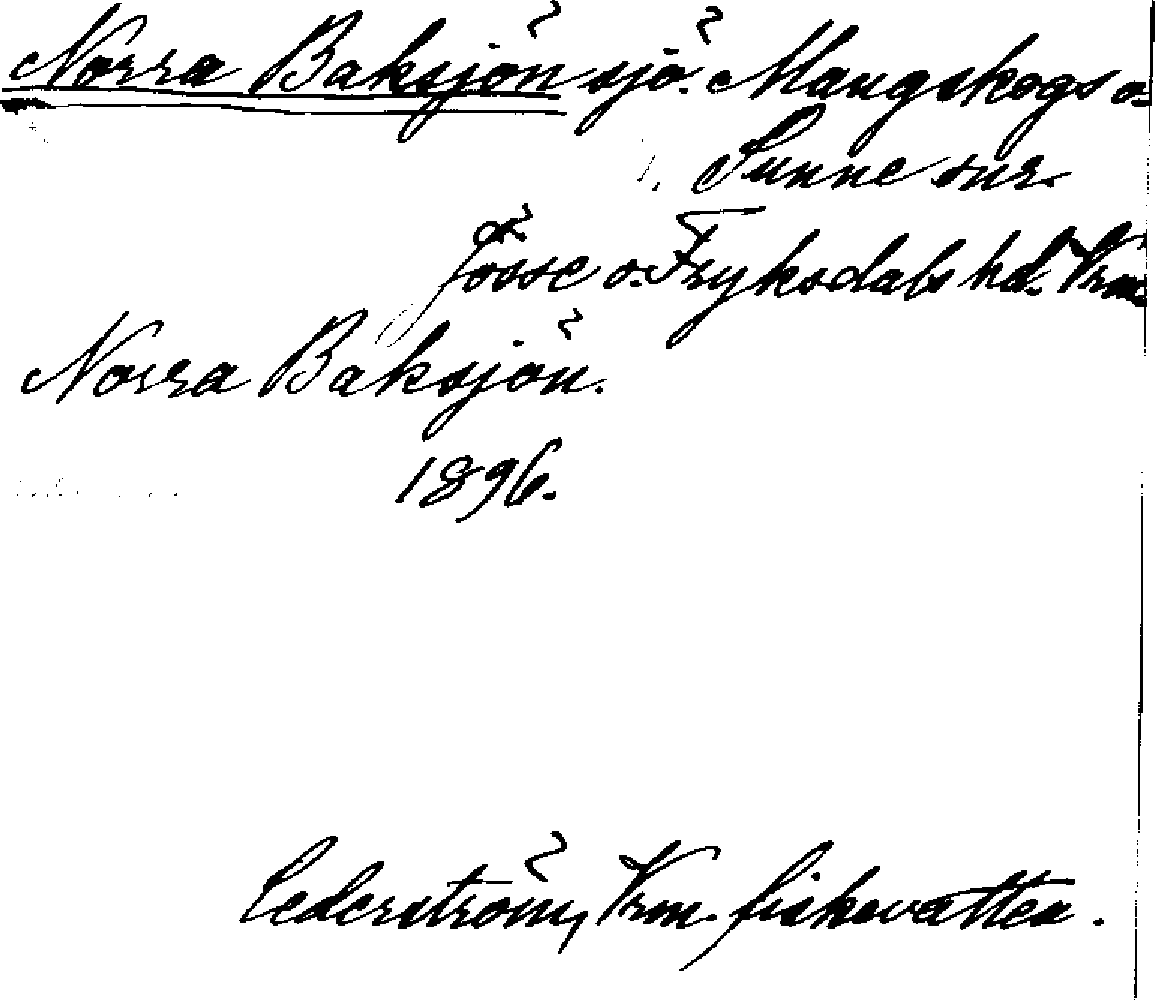 Norra Baksjön sjö. Mangskogs o.
Sunne snr.
Jösse o. Fryksdals hd. Vrm.
Norra Baksjön.
1896.
Cederström, Vrm. fiskevatten.